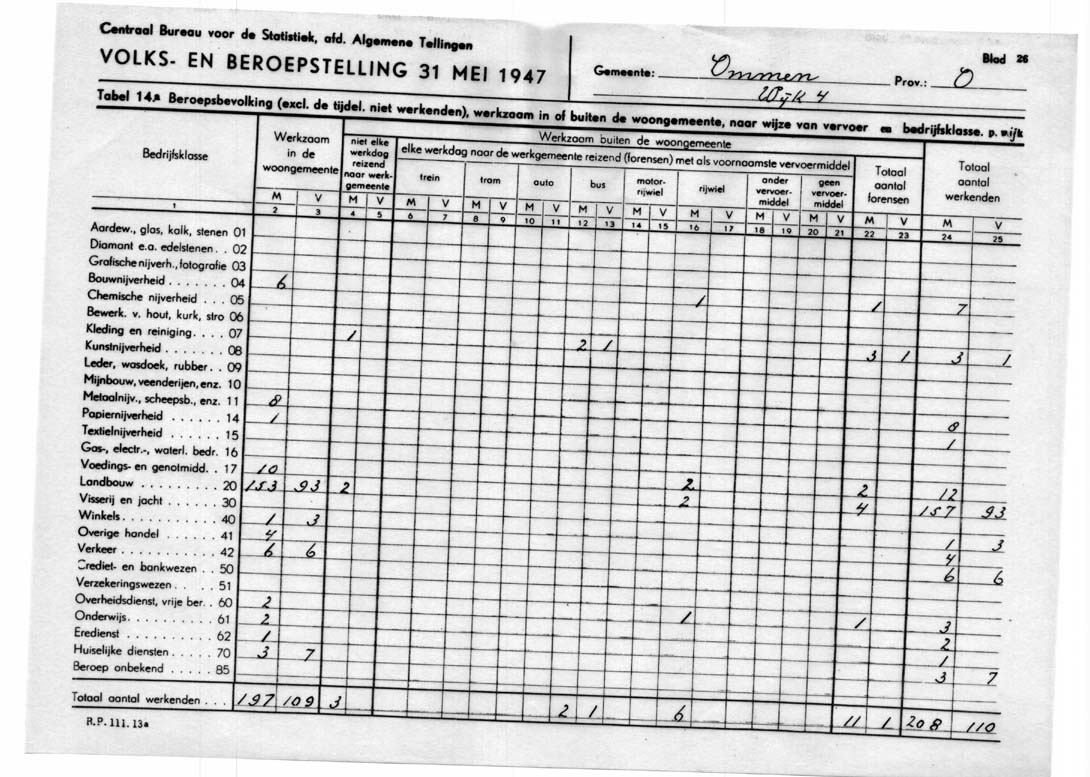 Centraal Bureau voor de Statistiek, afd. Algemene Tellingen
VOLKS- EN BEROEPSTELLING 31 MEI 1947
Gemeente: Ommen Prov.: O
Wijk 4
Blad 26
Tabel 14.a Beroepsbevolking (excl. de tijdel. niet werkenden), werkzaam in of buiten de woongemeente, naar wijze van vervoer en bedrijfsklasse. p. wijk
Bedrijfsklasse
Werkzaam in de woongemeente
Werkzaam buiten de woongemeente
niet elke werkdag reizend naar werkgemeente
elke werkdag naar de werkgemeente reizend (forensen) met als voornaamste vervoermiddel
trein tram auto bus motorrijwiel rijwiel ander vervoermiddel geen vervoermiddel
Totaal aantal forensen
Totaal aantal werkenden
M V M V M V M V M V M V M V M V M V M V M V M V
1 2 3 4 5 6 7 8 9 10 11 12 13 14 15 16 17 18 19 20 21 22 23 24 25
Aardew., glas, kalk, stenen 01
Diamant e.a. edelstenen . . 02
Grafische nijverh., fotografie 03
Bouwnijverheid . . . . . . . 04 6 1 1 7
Chemische nijverheid . . . 05
Bewerk. v. hout, kurk, stro 06
Kleding en reiniging . . . . 07 1 2 1 3 1 3 1
Kunstnijverheid . . . . . . . 08
Leder, wasdoek, rubber . . 09
Mijnbouw, veenderijen, enz. 10
Metaalnijv., scheepsb., enz. 11 8 8
Papiernijverheid . . . . . . 14 1 1
Textielnijverheid . . . . . . 15
Gas-, electr.-, waterl. bedr. 16
Voedings- en genotmidd. . 17 10 2 2 12
Landbouw . . . . . . . . . . 20 153 93 2 2 4 157 93
Visserij en jacht . . . . . . 30
Winkels . . . . . . . . . . . 40 1 3 1 3
Overige handel . . . . . . 41 4 4
Verkeer . . . . . . . . . . . 42 6 6 6 6
Crediet- en bankwezen . . 50
Verzekeringswezen . . . . 51
Overheidsdienst, vrije ber. . 60 2 1 1 3
Onderwijs . . . . . . . . . . 61 2 2
Eredienst . . . . . . . . . . 62 1 1
Huiselijke diensten . . . . . 70 3 7 3 7
Beroep onbekend . . . . . 85
Totaal aantal werkenden . . . 197 109 3 2 1 6 11 1 208 110
R.P. 111. 13a